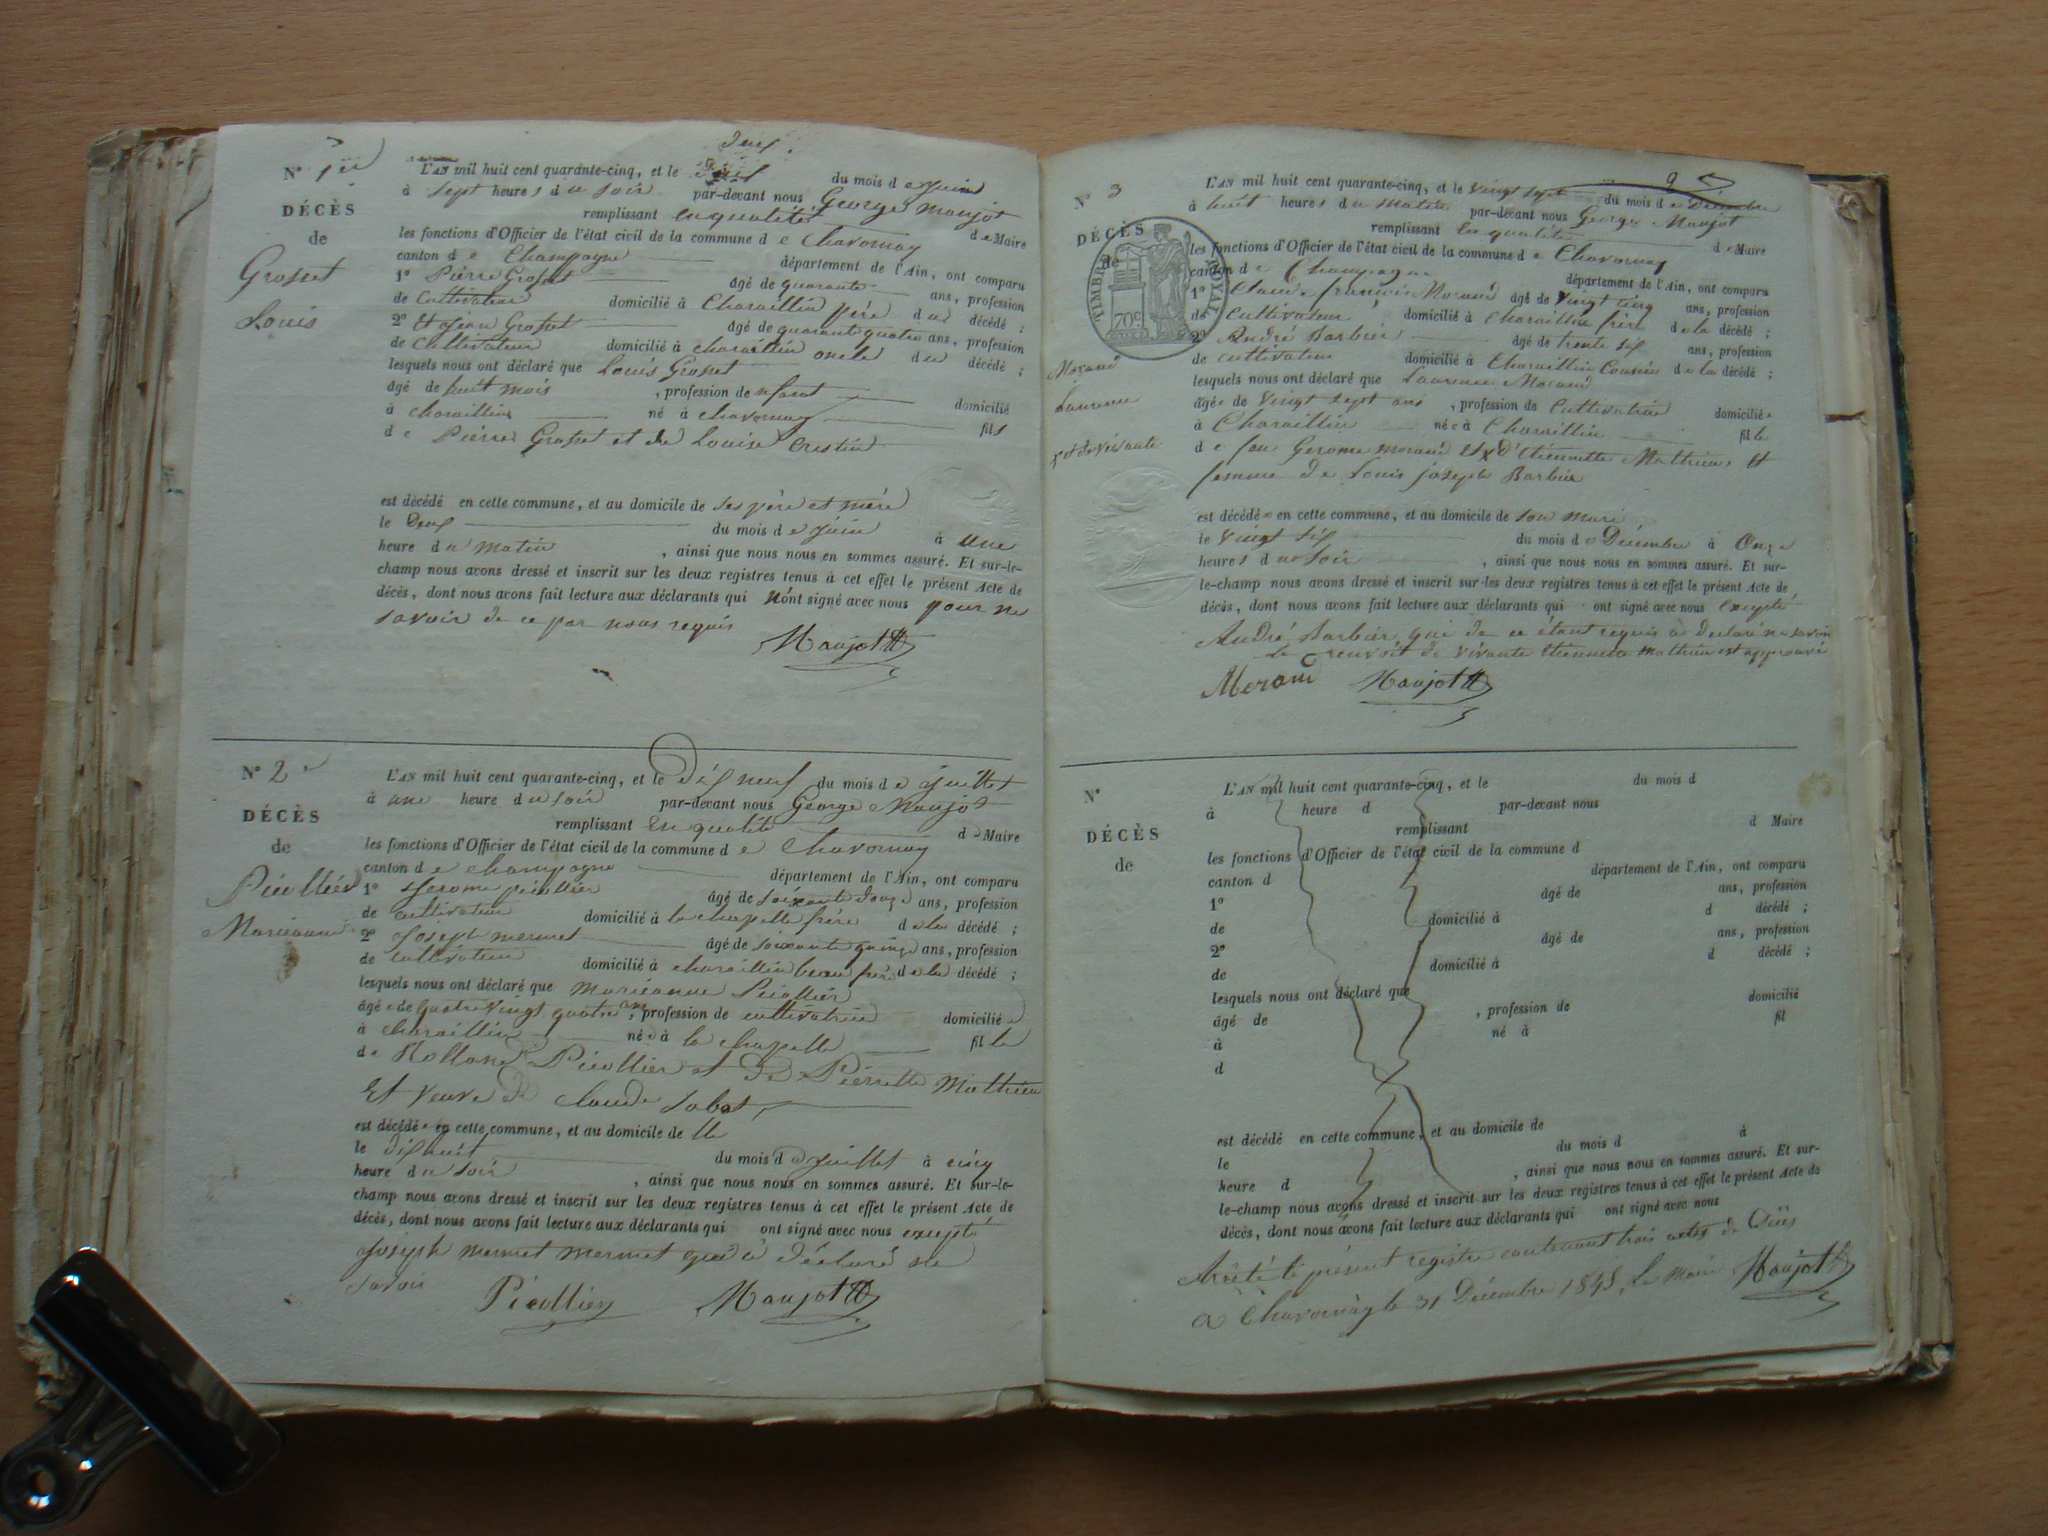 Nº 1er
DÉCÈS
de
Grosset
Louis
deux.
L'AN mil huit cent quarante-cinq, et le du mois de juin
à sept heures du soir par-devant nous George Maujot
remplissant en qualité de Maire
les fonctions d'Officier de l'état civil de la commune de Chavornay
canton de Champagne département de l'Ain, ont comparu
1º Pierre Grosset âgé de quarante ans, profession
de Cultivateur domicilié à Charaillin père du décédé ;
2º Et Jean Grosset âgé de quarante quatre ans, profession
de Cultivateur domicilié à Charaillin oncle du décédé ;
lesquels nous ont déclaré que Louis Grosset
âgé de huit mois , profession de domicilié
à Charaillin né à Chavornay fils
de Pierre Grosset et de Louise Crestin
est décédé en cette commune, et au domicile de ses père et mère
le Deux du mois de juin à une
heure du matin , ainsi que nous nous en sommes assuré. Et sur-le-
champ nous avons dressé et inscrit sur les deux registres tenus à cet effet le présent Acte de
décès, dont nous avons fait lecture aux déclarants qui n'ont signé avec nous pour ne
savoir de ce par nous requis
Maujot
Nº 2
DÉCÈS
de
Picollier
Marieanne
L'AN mil huit cent quarante-cinq, et le dix neuf du mois de juillet
à une heure du soir par-devant nous George Maujot
remplissant en qualité de Maire
les fonctions d'Officier de l'état civil de la commune de Chavornay
canton de Champagne département de l'Ain, ont comparu
1º Jerome picollier âgé de soixante douze ans, profession
de cultivateur domicilié à la chapelle frère de la décédé ;
2º Joseph mermet âgé de soixante quinze ans, profession
de cultivateur domicilié à charaillin beau frère de la décédé ;
lesquels nous ont déclaré que marieanne Picollier
âgée de quatre vingt quatre ans, profession de cultivatrice domiciliée
à charaillin née à la chapelle fille
de Rolland Picollier et de Pierrette Mathieu
Et veuve de Claude
est décédée en cette commune, et au domicile de
le dix huit du mois de juillet à cinq
heure du soir , ainsi que nous nous en sommes assuré. Et sur-le-
champ nous avons dressé et inscrit sur les deux registres tenus à cet effet le présent Acte de
décès, dont nous avons fait lecture aux déclarants qui ont signé avec nous excepté
Joseph mermet mermet qui à déclaré ne
savoir
Picollier Maujot
2
Nº 3
DÉCÈS
de
TIMBRE ROYAL
70c
Morand
Laurence
L'AN mil huit cent quarante-cinq, et le vingt sept du mois de Décembre
à huit heures du matin par-devant nous George Maujot
remplissant en qualité de Maire
les fonctions d'Officier de l'état civil de la commune de Chavornay
canton de Champagne département de l'Ain, ont comparu
1º Claude françois Morand âgé de vingt cinq ans, profession
de Cultivateur domicilié à Charaillin frère de la décédé ;
2º André Barbier âgé de trente six ans, profession
de cultivateur domicilié à Charaillin Cousin de la décédé ;
lesquels nous ont déclaré que Laurence Morand
âgée de vingt sept ans , profession de Cultivatrice domiciliée
à Charaillin née à Charaillin fille
de feu Gerome morand Et d'Etiennette Mathieu Et
femme de Louis joseph Barbier
est décédée en cette commune, et au domicile de son mari
le vingt six du mois de Décembre à Onze
heures du soir , ainsi que nous nous en sommes assuré. Et sur-
le-champ nous avons dressé et inscrit sur les deux registres tenus à cet effet le présent Acte de
décès, dont nous avons fait lecture aux déclarants qui ont signé avec nous excepté
André Barbier, qui de ce étant requis à déclaré ne savoir
Le renvoit de vivante Etiennette mathieu est approuvé
Morand Maujot
Nº
DÉCÈS
de
L'AN mil huit cent quarante-cinq, et le du mois d
à heure d par-devant nous
remplissant d Maire
les fonctions d'Officier de l'état civil de la commune d
canton d département de l'Ain, ont comparu
1º âgé de ans, profession
de domicilié à d décédé ;
2º âgé de ans, profession
de domicilié à d décédé ;
lesquels nous ont déclaré que
âgé de , profession de domicilié
à né à fil
d
est décédé en cette commune, et au domicile de
le du mois d à
heure d , ainsi que nous nous en sommes assuré. Et sur-
le-champ nous avons dressé et inscrit sur les deux registres tenus à cet effet le présent Acte de
décès, dont nous avons fait lecture aux déclarants qui ont signé avec nous
Arrêté le présent registre contenant trois actes de
à Chavornay le 31 Décembre 1845, Le maire Maujot